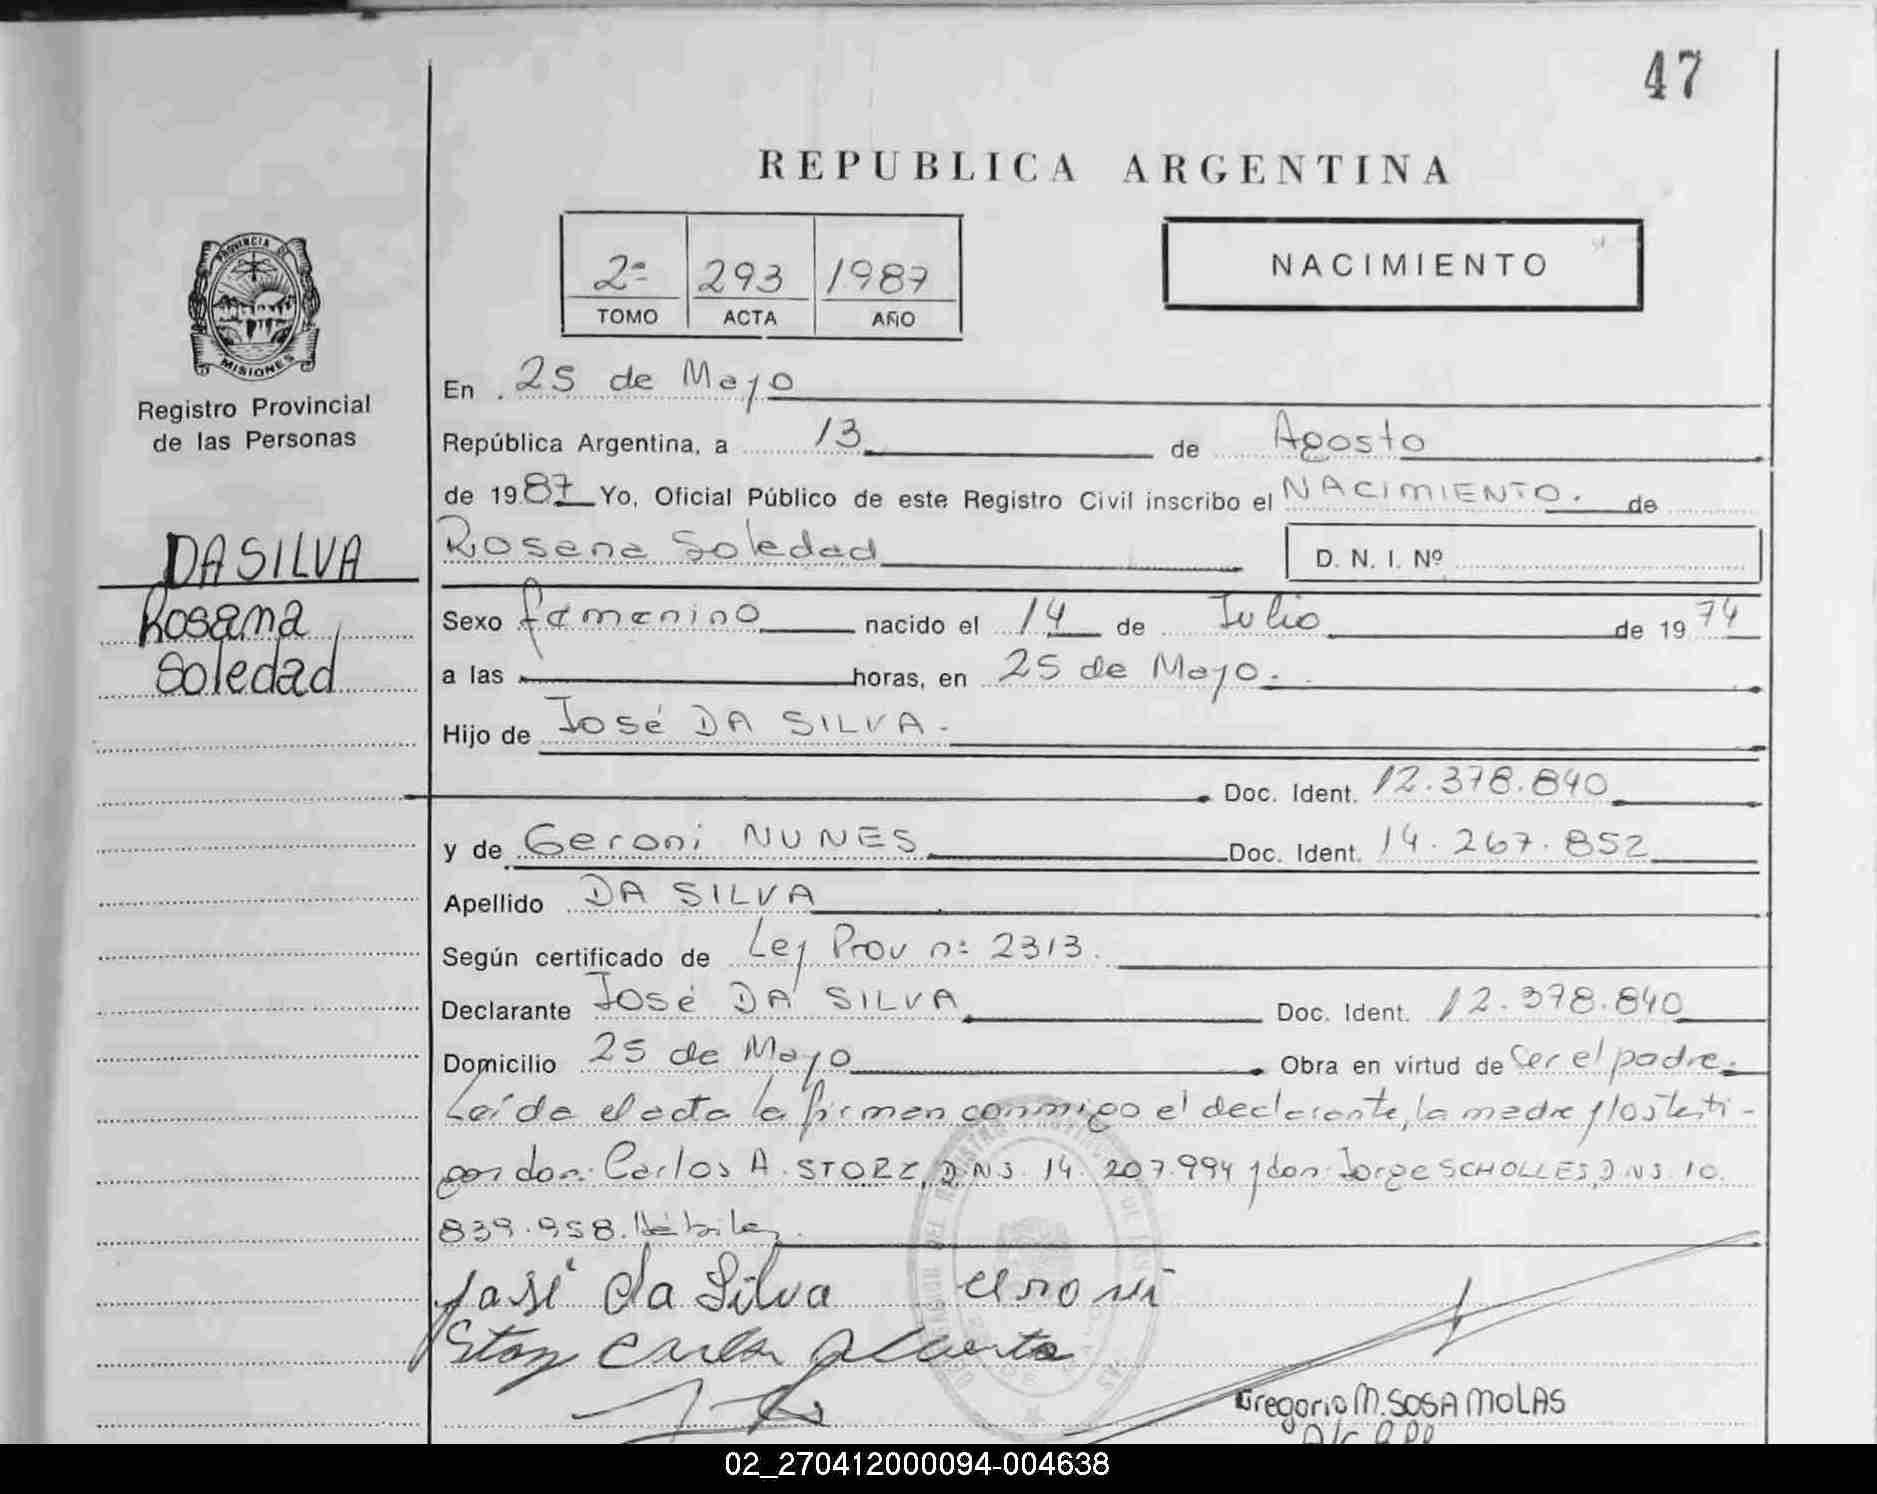 47
REPUBLICA ARGENTINA
2ª 293 1987
TOMO ACTA AÑO
NACIMIENTO
PROVINCIA DE MISIONES
Registro Provincial
de las Personas
DA SILVA
Rosana
Soledad
En 25 de Mayo
República Argentina, a 13 de Agosto
de 1987 Yo, Oficial Público de este Registro Civil inscribo el NACIMIENTO. de
Rosana Soledad D. N. I. Nº
Sexo femenino nacido el 14 de Julio de 1974
a las horas, en 25 de Mayo.
Hijo de José DA SILVA.
Doc. Ident. 12.378.840
y de Geroni NUNES Doc. Ident. 14.267.852
Apellido DA SILVA
Según certificado de Ley Prov nº 2313.
Declarante José DA SILVA Doc. Ident. 12.378.840
Domicilio 25 de Mayo Obra en virtud de ser el padre.
Leída el acta la firman conmigo el declarante, la madre y los testi-
gos don: Carlos A. STORZ, D.N.I. 14.207.994 y don: Jorge SCHOLLES, D.N.I. 10.
839.958. Hábiles.
José da Silva
Gregorio M. SOSA MOLAS
02_270412000094-004638